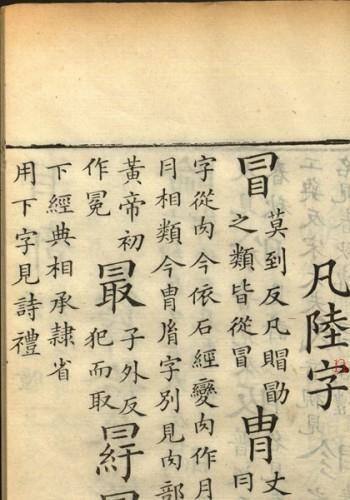 凡陸字
冒 莫到反凡賵勖
之類皆從冒 冑 丈
字從肉今依石經變肉作月
相類今冑字別見肉部
黃帝初
作冕 最 子外反
犯而取
下經典相承隸省
用下字見詩禮